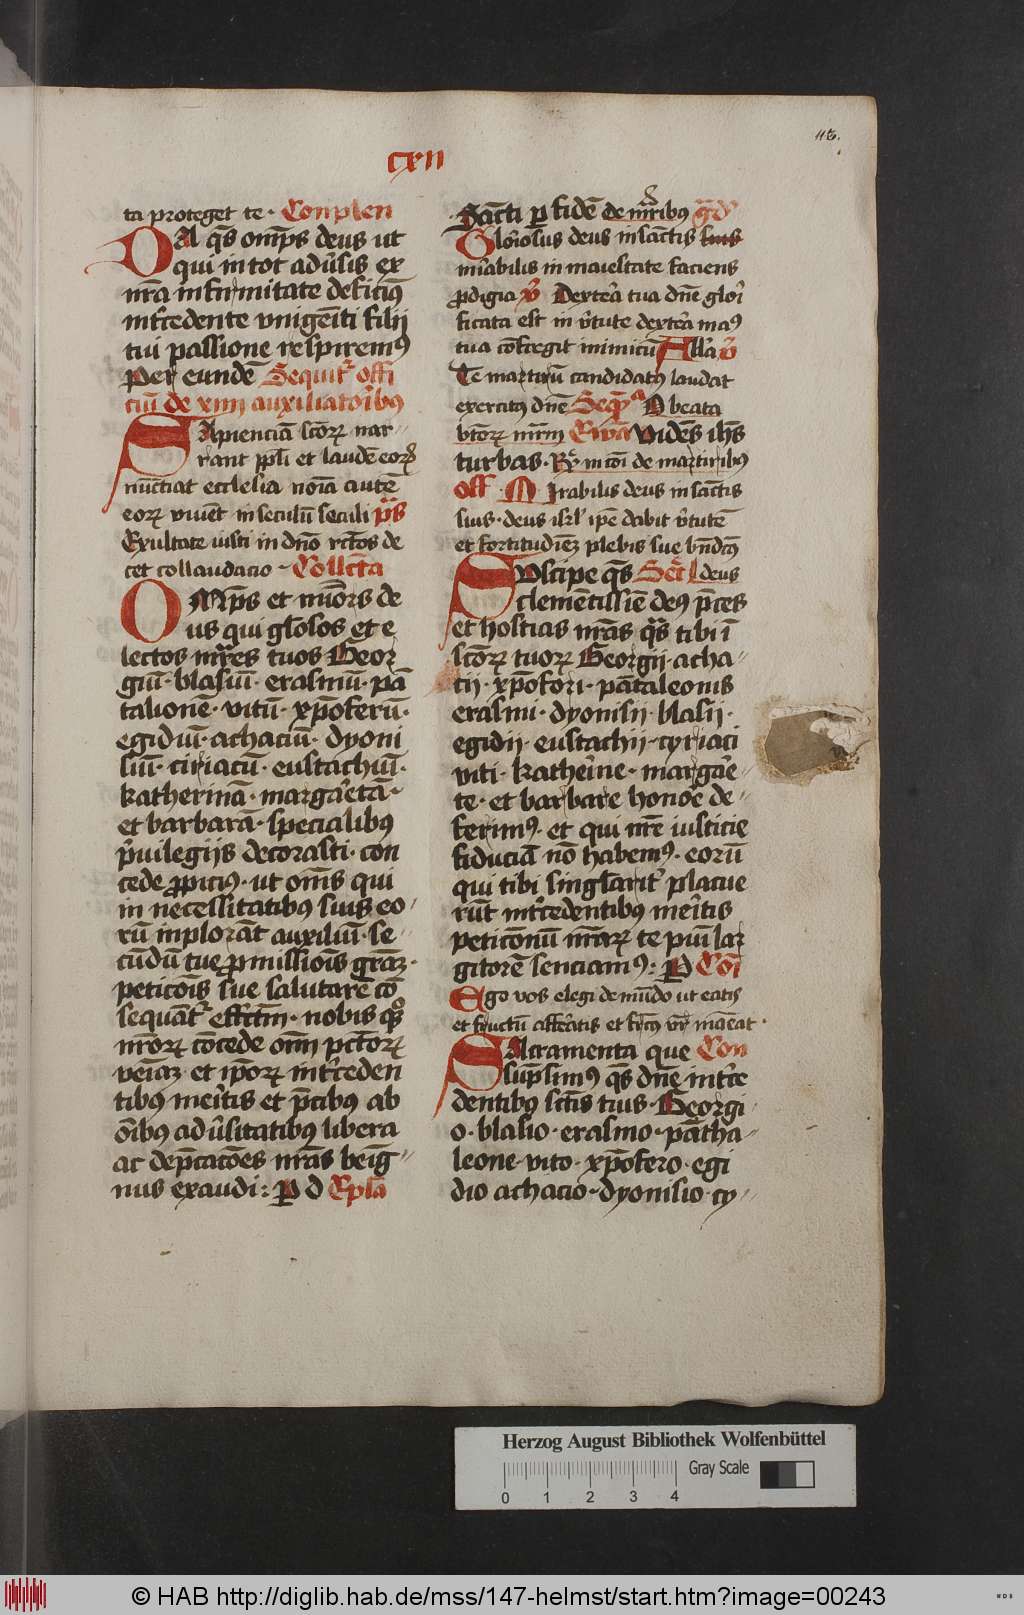 cxii
113.
ta proteget te · Complen
DA qs̄ omp̄s deus ut
qui in tot adu̓sis ex
nr̄a infirmitate deficiꝰ
int̓cedente vnigeīti filij
tui passione respiremꝰ
Per eundē Sequit̓ offi
ciū de xiiii auxiliatoribꝰ
SApienciā sc̄orꝝ nar
rant pp̄li et laudē eorꝝ
nūctiat ecclesia noīa autē
eorꝝ viuēt in seculū seculi p̄s
Exultate iusti in dn̄o rc̄tos de
cet collaudacio · Collc̄ta
OMp̄s et mīors de
us qui gl̓osos et e
lectos mr̄es tuos Geor
giū · blasiū · erasmū · pā
taleonē · vitū · xp̄oferū ·
egidiū · achaciū · dyoni
siū · ciriacū · eustachiū ·
katherinā · margaretā ·
et barbarā · specialibꝰ
p̓uilegijs decorasti · con
cede ꝓpiciꝰ · ut om̄s qui
in necessitatibꝰ suis eo
rū inplorāt auxiliū · se
cūdū tue ꝓmissiōis gr̄aꝫ ·
peticōis sue salutarē cō
sequāt̓ effc̄tm · nobis qꝫ
nr̄orꝝ cōcede om̄i pctōrꝝ
veīaꝫ · et ip̄orꝝ int̓ceden
tibꝰ meritis et p̄cibꝰ ab
ōibꝰ adu̓sitatibꝰ libera
ac dep̄cacōes nr̄as beig
nus exaudi : P d Epl̄a
Sanc̄ti ꝑ fidē de mr̄ibus gr̄d
Gloriosus deus in sāctis suis
mirabilis in maiestate faciens
ꝓdigia v̓ Dextera tua dn̄e glori
ficata est in v̓tute dextera maꝰ
tua cōfregit inimicū All̓a v̓
Te martirū candidatꝰ laudat
exercitꝰ dn̄e Seqꝫ O beata
btōrꝝ mr̄m Ewā Vidēs ihs̄
turbas · Rͤ in cōi de martiribꝰ
Off Mirabilis deus in sāctis
suis · deus isrl̓ ipē dabit v̓tutē
et fortitudiēꝫ plebis sue bn̄dctꝰ
SUscipe qs̄ Secͬ deus
clementissīe deꝰ p̄ces
et hostias nr̄as qs̄ tibi ī
sc̄orꝝ tuorꝝ Georgii · acha
tii · xp̄ofori · pātaleonis
erasmi · dyonisii · blasii ·
egidii · eustachii · cyriaci
viti · katherine · margare
te · et barbare honoꝛe de
ferimꝰ · et qui nr̄e iusticie
fiduciā nō habemꝰ · eorū
qui tibi singl̓arit̓ placue
rūt int̓cedentibꝰ meritis
peticōnū nr̄arꝝ te piū lar
gitorē senciamꝰ : P Cōi
Ego vos elegi de mūdo ut eatis
et fructū afferatis et frctꝰ vr̄ māeat ·
SAcramenta que Con
sūpsimꝰ qs̄ dn̄e int̓ce
dentibꝰ sctīs tuis · Georgi
o · blasio · erasmo · pātha
leone · vito · xp̄ofero · egi
dio achacio · dyonisio · cy
Herzog August Bibliothek Wolfenbüttel
Gray Scale
0 1 2 3 4
© HAB http://diglib.hab.de/mss/147-helmst/start.htm?image=00243